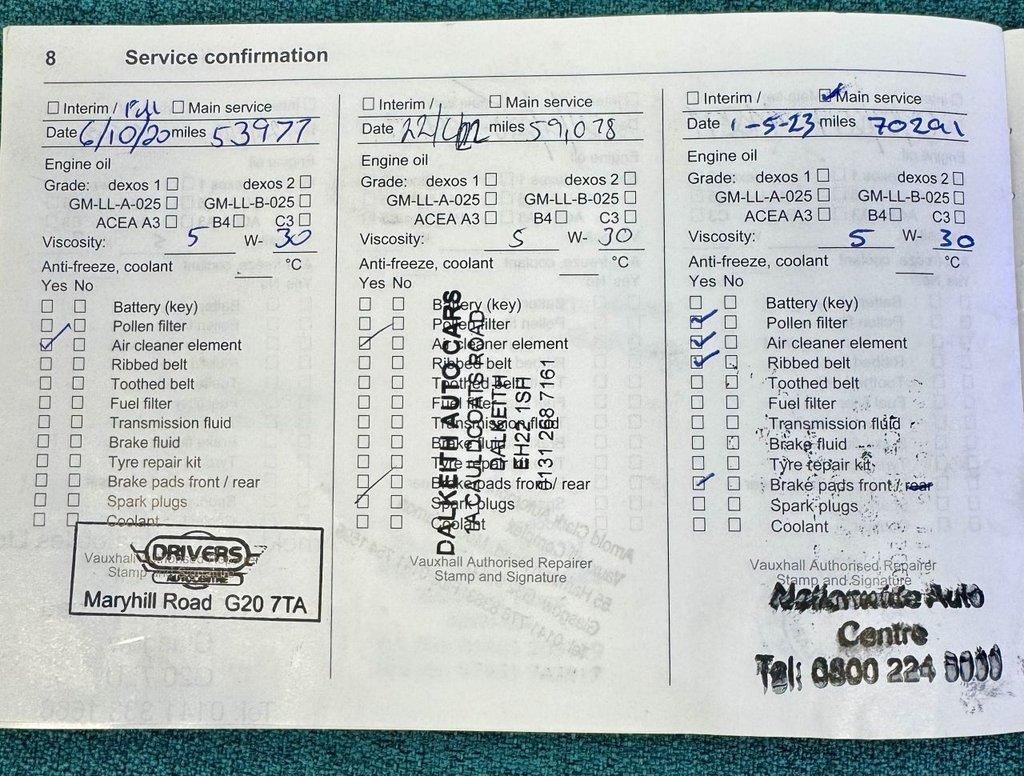 8 Service confirmation
Interim / Full Main service
Date 6/10/20 miles 53977
Engine oil
Grade: dexos 1 dexos 2
GM-LL-A-025 GM-LL-B-025
ACEA A3 B4 C3
Viscosity: 5 W- 30
Anti-freeze, coolant °C
Yes No
Battery (key)
Pollen filter
Air cleaner element
Ribbed belt
Toothed belt
Fuel filter
Transmission fluid
Brake fluid
Tyre repair kit
Brake pads front / rear
Spark plugs
Coolant
Vauxhall Authorised Repairer
Stamp and Signature
DRIVERS
AUTOCENTRE
Maryhill Road G20 7TA
Interim / Main service
Date miles 59,078
Engine oil
Grade: dexos 1 dexos 2
GM-LL-A-025 GM-LL-B-025
ACEA A3 B4 C3
Viscosity: 5 W- 30
Anti-freeze, coolant °C
Yes No
Battery (key)
Pollen filter
Air cleaner element
Ribbed belt
Toothed belt
Fuel filter
Transmission fluid
Brake fluid
Tyre repair kit
Brake pads front / rear
Spark plugs
Coolant
DALKEITH AUTO CARS
ROAD
DALKEITH
EH22 1SH
Vauxhall Authorised Repairer
Stamp and Signature
Interim / Main service
Date 1-5-23 miles 70291
Engine oil
Grade: dexos 1 dexos 2
GM-LL-A-025 GM-LL-B-025
ACEA A3 B4 C3
Viscosity: 5 W- 30
Anti-freeze, coolant °C
Yes No
Battery (key)
Pollen filter
Air cleaner element
Ribbed belt
Toothed belt
Fuel filter
Transmission fluid
Brake fluid
Tyre repair kit
Brake pads front / rear
Spark plugs
Coolant
Vauxhall Authorised Repairer
Stamp and Signature
Nationwide Auto
Centre
Tel: 0800 224